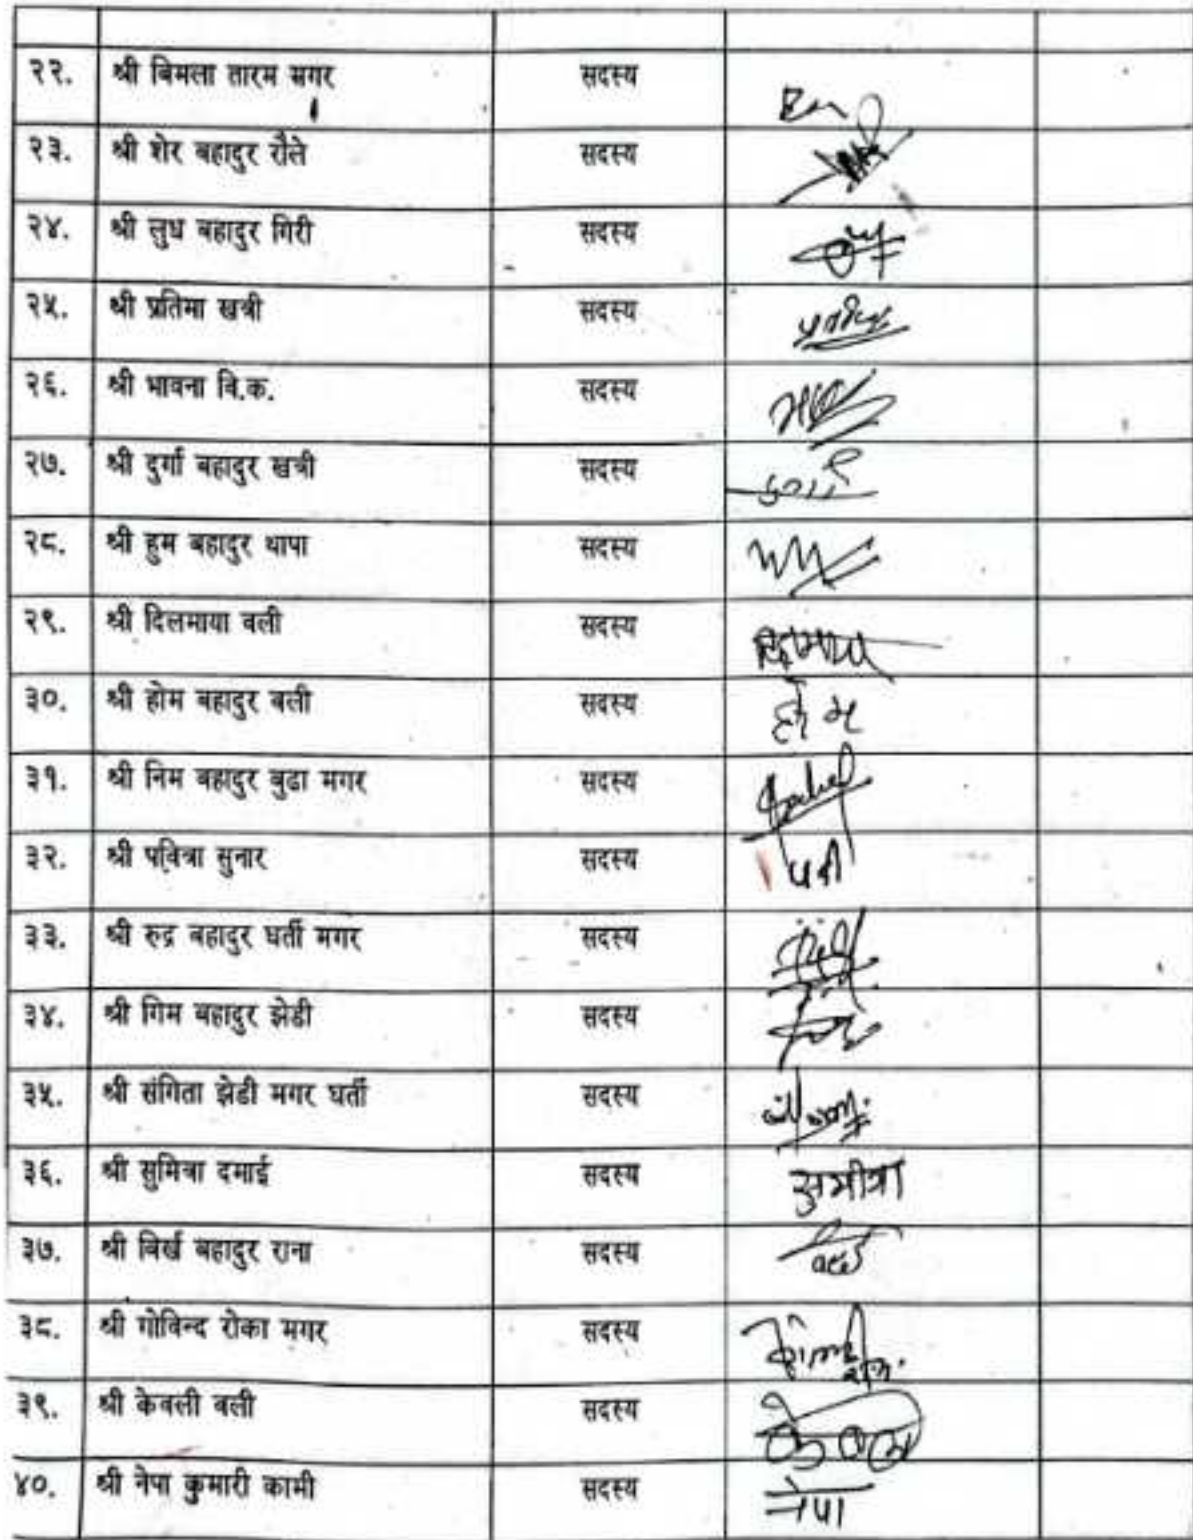 २२. श्री बिमला तारम मगर सदस्य
२३. श्री शेर बहादुर रौले सदस्य
२४. श्री लुध बहादुर गिरी सदस्य
२५. श्री प्रतिमा खत्री सदस्य
२६. श्री भावना वि.क. सदस्य
२७. श्री दुर्गा बहादुर खत्री सदस्य
२८. श्री हुम बहादुर थापा सदस्य
२९. श्री दिलमाया वली सदस्य
३०. श्री होम बहादुर वली सदस्य होम
३१. श्री निम बहादुर बुढा मगर सदस्य
३२. श्री पवित्रा सुनार सदस्य
३३. श्री रुद्र बहादुर घर्ती मगर सदस्य
३४. श्री गिम बहादुर झेडी सदस्य
३५. श्री संगिता झेडी मगर घर्ती सदस्य
३६. श्री सुमित्रा दमाई सदस्य सुमीत्रा
३७. श्री बिर्ख बहादुर राना सदस्य
३८. श्री गोविन्द रोका मगर सदस्य
३९. श्री केवली वली सदस्य
४०. श्री नेपा कुमारी कामी सदस्य नेपा